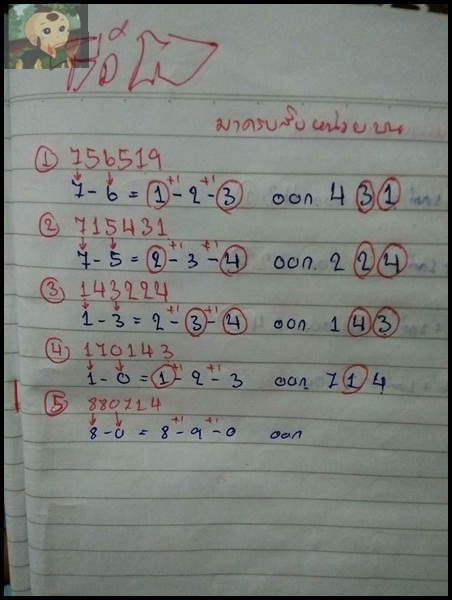 มาครบสิบหน่วยบน
① 756519
7 - 6 = 1 - 2 - 3 ออก 4 3 1
+1 +1
② 715431
7 - 5 = 2 - 3 - 4 ออก. 2 2 4
+1 +1
③ 143224
1 - 3 = 2 - 3 - 4 ออก. 1 4 3
+1 +1
④ 170143
1 - 0 = 1 - 2 - 3 ออก. 7 1 4
+1 +1
⑤ 880714
8 - 0 = 8 - 9 - 0 ออก
+1 +1